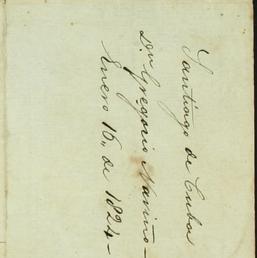 Santiago de Cuba
Dn Gregorio Nariño—
Enero 16,, de 1824—